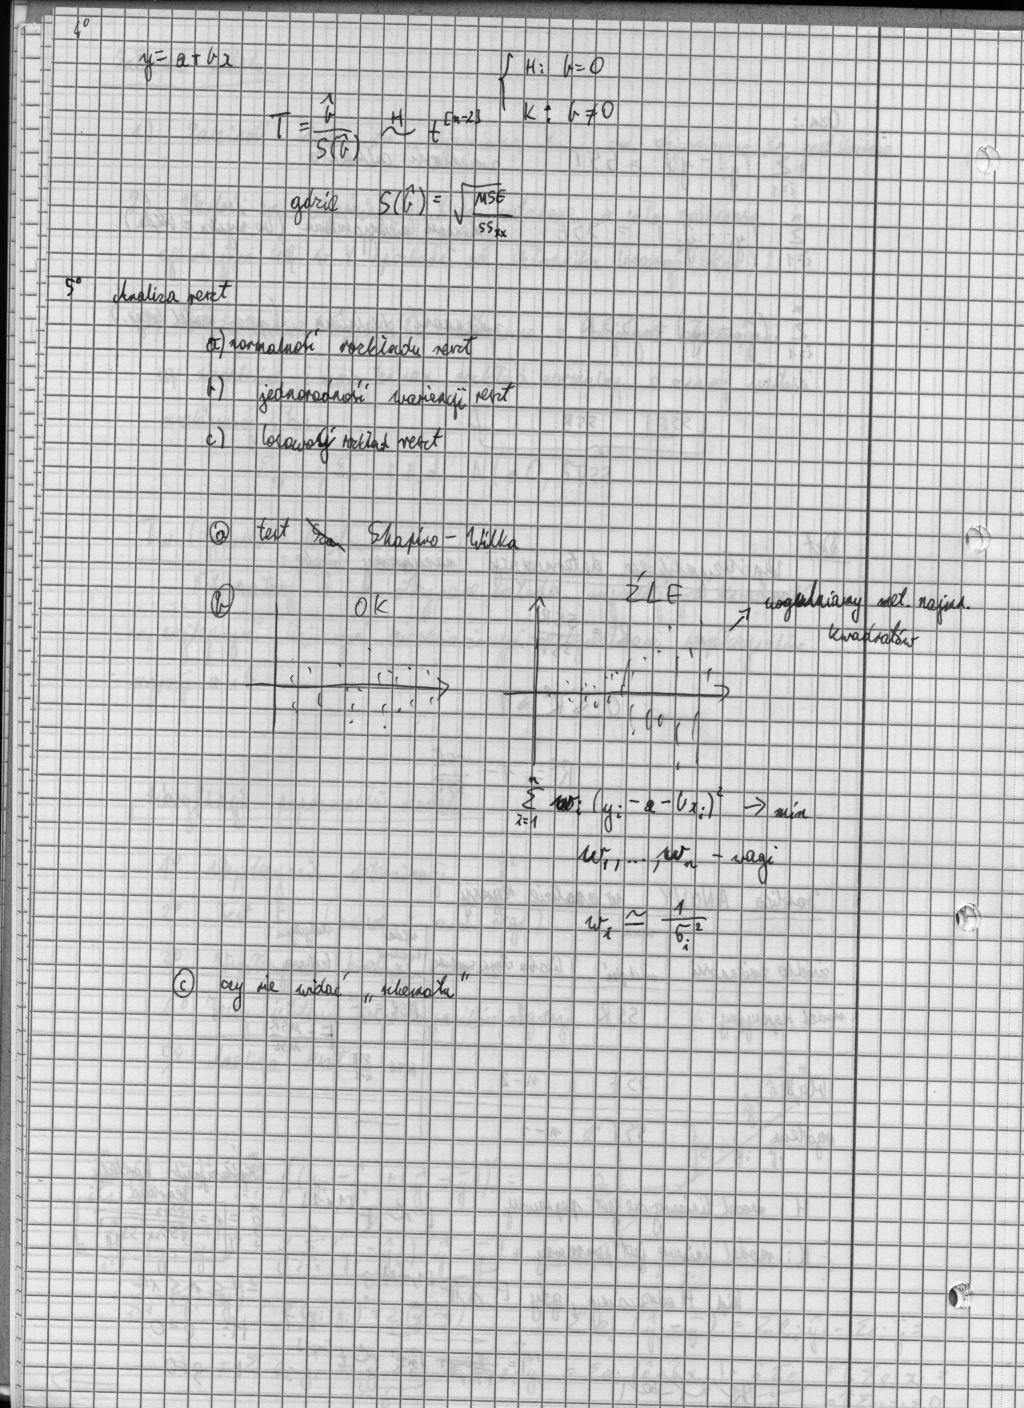 4°
y = a + bx
{ H: b = 0
K: b ≠ 0
T = b̂ / S(b̂) ~ᴴ t^[n-2]
gdzie S(b̂) = √(MSE / SSxx)
5° Analiza reszt
a) normalność rozkładu reszt
b) jednorodność wariancji reszt
c) losowość rozkład reszt
ⓐ test Shapiro-Wilka
ⓑ OK ŹLE
↗ uogólniamy met. najmn.
kwadratów
n
∑ wi (yi - a - bxi)² → min
i=1
w1, ..., wn - wagi
wi ≃ 1 / σi²
ⓒ czy nie widać „schematu"